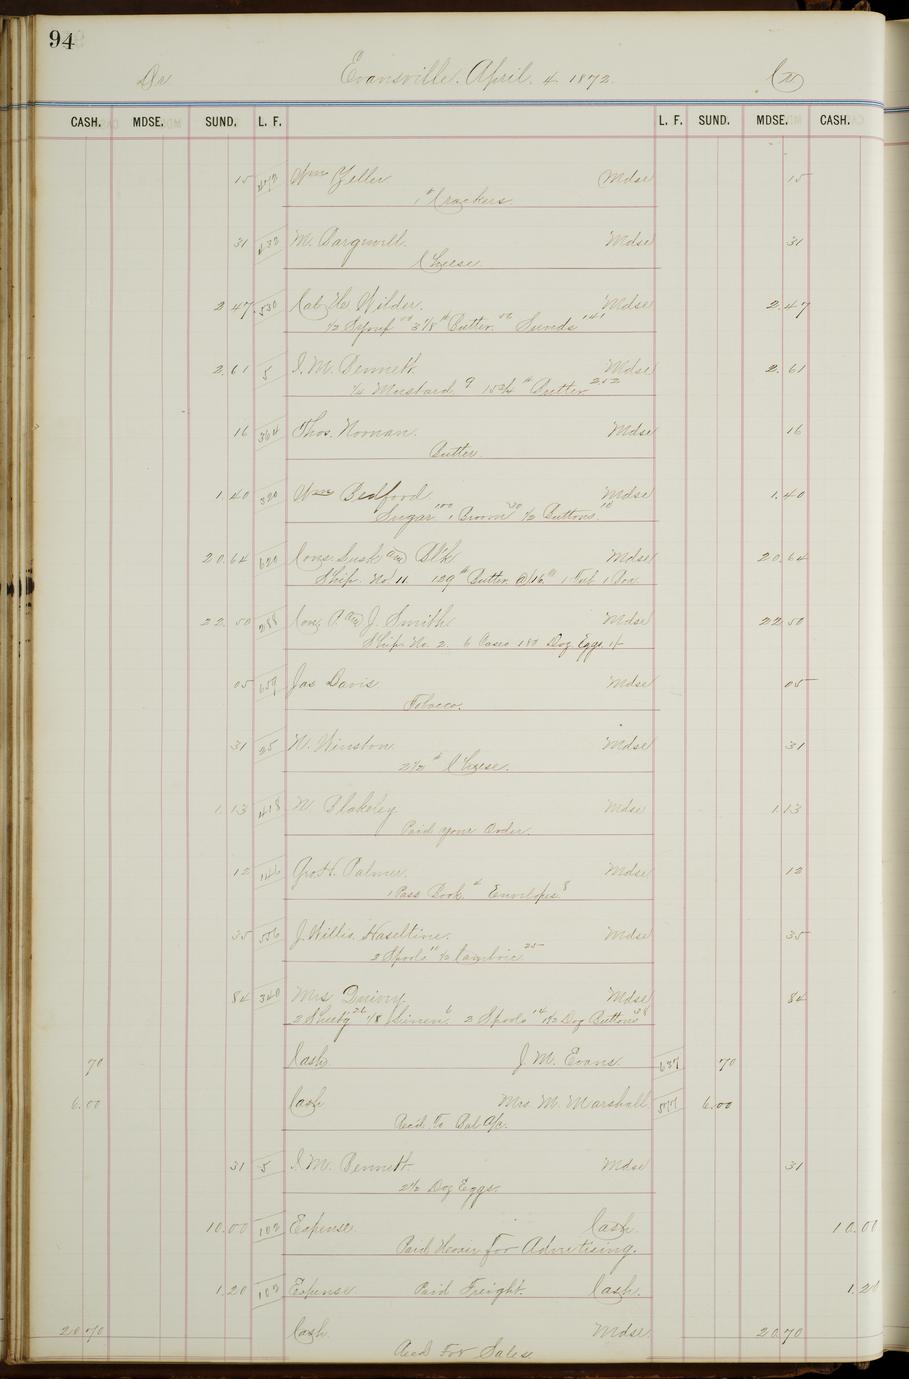 94
Dr Evansville. April. 4 1872. Cr
CASH. MDSE. SUND. L. F. L. F. SUND. MDSE. CASH.
15 Wm Zeller Mdse 15
1# Crackers.
31 432 M. Mdse 31
Cheese.
2.47 530 Wilder. Mdse 2.47
1/2 Syrup 3 1/8# Butter. Sunds 141
2.61 5 I. M. Bennett. Mdse 2.61
1/4 Mustard 9 Butter 252
16 364 Thos. Noonan. Mdse 16
Butter.
1.40 320 Wm Bedford Mdse 1.40
Sugar 100 1 Broom 30 1/2 Buttons. 10
20.64 620 Cons. Lusk a/c Blk Mdse 20.64
Ship. No 11 129# Butter @ 16 1 Tub 1 Box
22.50 288 Con. P. a/c J. Smith Mdse 22.50
Ship. No. 2. 6 Cases 180 Doz Eggs
05 659 Jas Davis Mdse 05
Tobacco.
31 25 N. Winston. Mdse 31
2 1/2# Cheese.
1.13 418 W. Blakeley Mdse 1.13
Paid your Order.
12 146 Geo. H. Palmer. Mdse 12
1 Pass Book 4 Envelopes 8
35 556 J. Willis Haseltine. Mdse 35
2 Spools 1/2 Cambric 25
84 340 Mrs Mdse 84
2 26 1/8 Linen 6 2 Spools 14 1 1/2 Doz Buttons 38
70 Cash J. M. Evans. 637 70
6.00 Cash Mrs. M. Marshall 577 6.00
Recd. To Bal a/c.
31 5 I. M. Bennett. Mdse 31
2 1/2 Doz Eggs.
10.00 102 Expense Cash 10.00
Paid for Advertising.
1.20 102 Expense. Paid Freight. Cash. 1.20
20.70 Cash Mdse 20.70
Recd For Sales